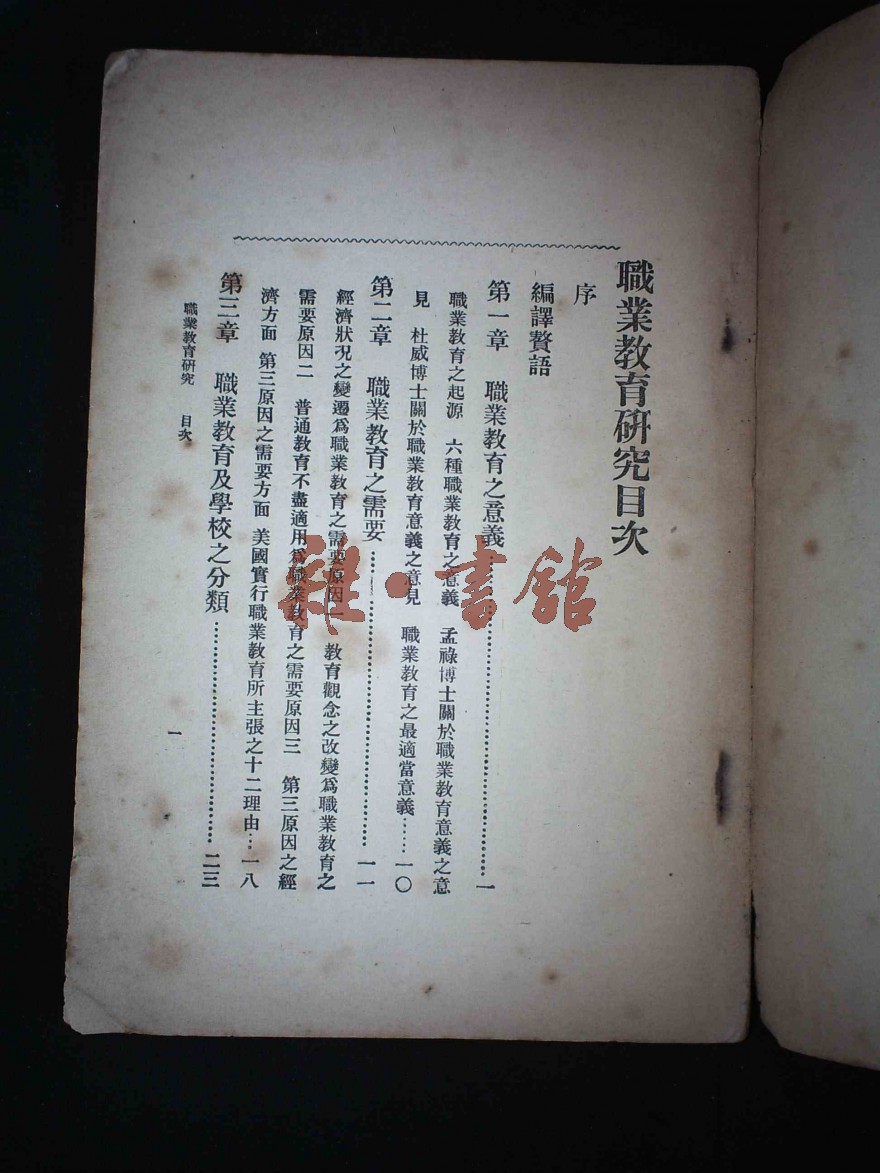 職業教育研究目次
序
編譯贅語
第一章　職業教育之意義……………………………一
職業教育之起源　六種職業教育之意義　孟祿博士關於職業教育意義之意
見　杜威博士關於職業教育意義之意見　職業教育之最適當意義……一〇
第二章　職業教育之需要……………………………一一
經濟狀況之變遷爲職業教育之需要原因一　教育觀念之改變爲職業教育之
需要原因二　普通教育不盡適用爲職業教育之需要原因三　第三原因之經
濟方面　第三原因之需要方面　美國實行職業教育所主張之十二理由…一八
第三章　職業教育及學校之分類……………………二三
職業教育研究　目次
一
雜·書館